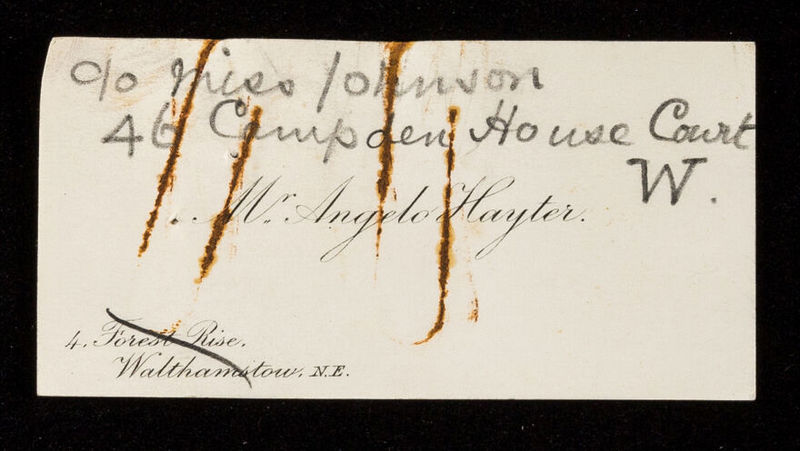 c/o Miss Johnson
46 Campden House Court
W.
Mr. Angelo Hayter.
4, Forest Rise.
Walthamstow, N.E.